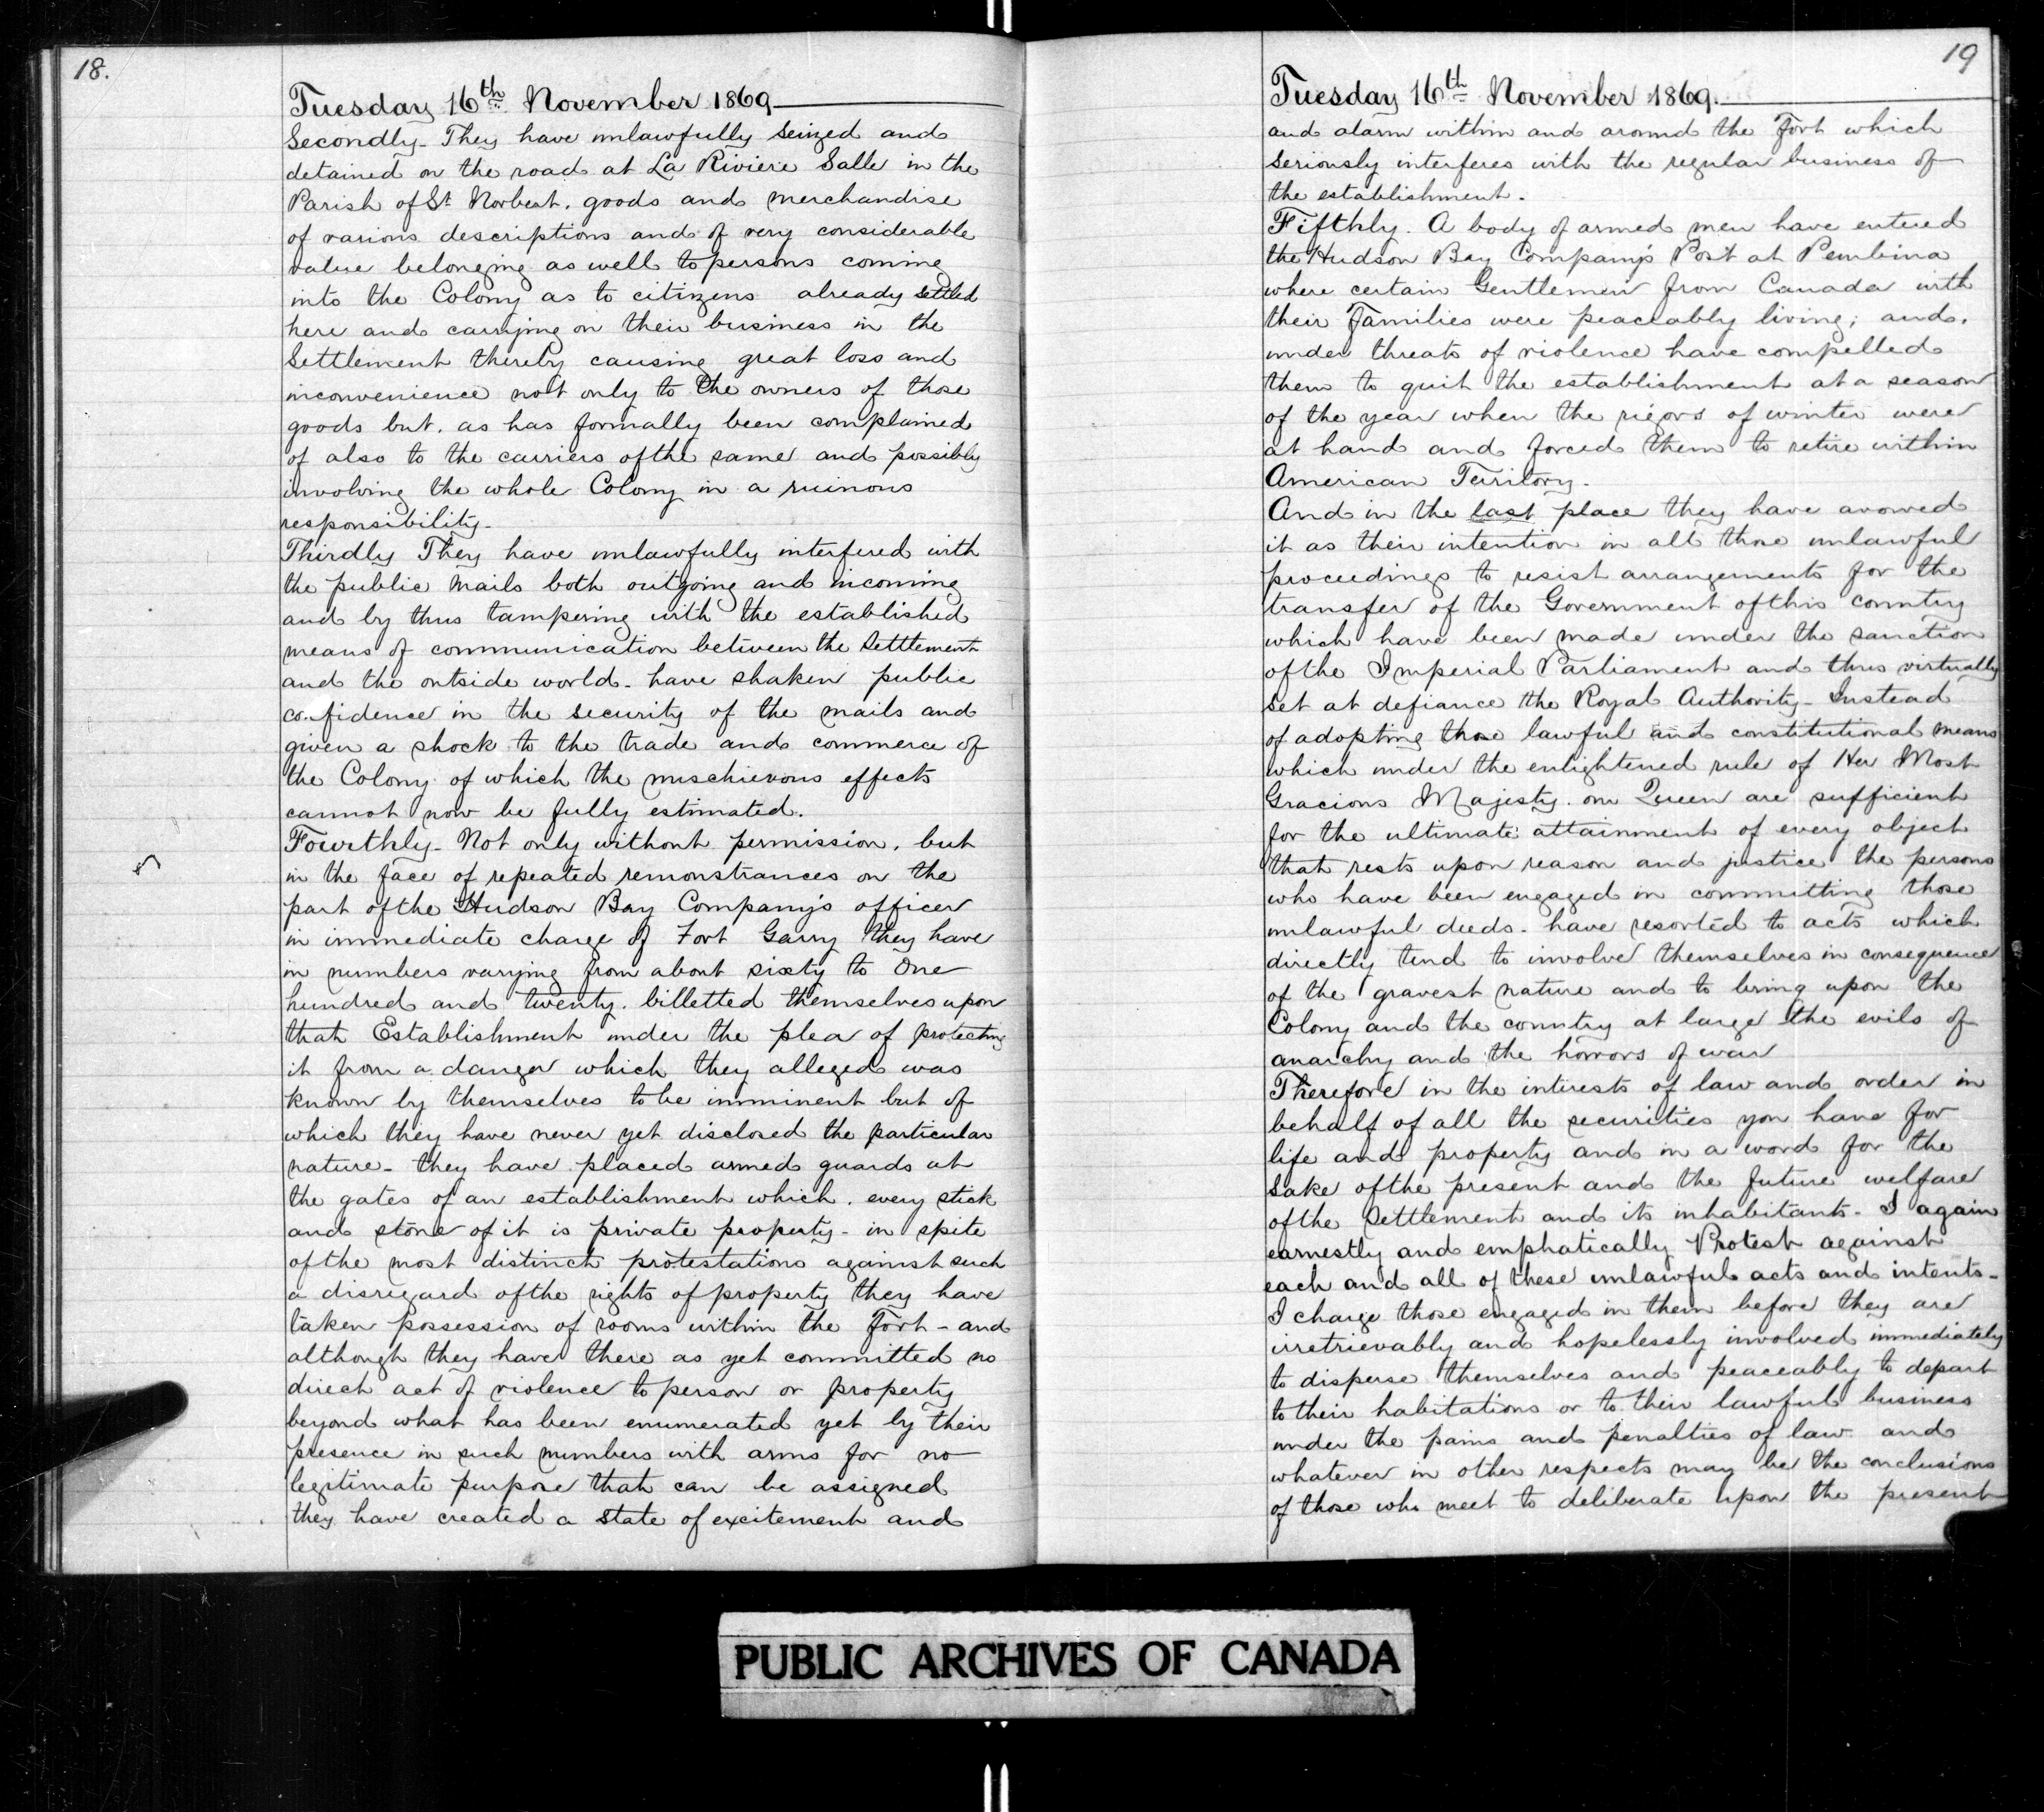 18.
Tuesday 16th November 1869
Secondly - They have unlawfully seized and
detained on the road at La Riviere Salle in the
Parish of St Norbert. goods and merchandise
of various descriptions and of very considerable
value belonging as well to persons coming
into the Colony as to citizens already settled
here and carrying on their business in the
Settlement thereby causing great loss and
inconvenience not only to the owners of those
goods but. as has formally been complained
of also to the carriers of the same and possibly
involving the whole Colony in a ruinous
responsibility -
Thirdly They have unlawfully interfered with
the public mails both outgoing and incoming
and by thus tampering with the established
means of communication between the Settlement
and the outside world - have shaken public
co.fidence in the security of the mails and
given a shock to the trade and commerce of
the Colony of which the mischievous effects
cannot now be fully estimated.
Fourthly - Not only without permission, but
in the face of repeated remonstrances on the
part of the Hudson Bay Company's officer
in immediate charge of Fort Garry they have
in numbers varying from about sixty to One
hundred and twenty. billetted themselves upon
that Establishment under the plea of protecting
it from a danger which they alleged was
known by themselves to be imminent but of
which they have never yet disclosed the particular
nature - they have placed armed guards at
the gates of an establishment which. every stick
and stone of it is private property - in spite
of the most distinct protestations against such
a disregard of the rights of property they have
taken possession of rooms within the Fort - and
although they have there as yet committed no
direct act of violence to person or property
beyond what has been enumerated yet by their
presence in such numbers with arms for no
legitimate purpose that can be assigned
they have created a state of excitement and
19
Tuesday 16th November 1869.
and alarm within and around the Fort which
seriously interferes with the regular business of
the establishment.
Fifthly. A body of armed men have entered
the Hudson Bay Company's Post at Pembina
where certain Gentlemen from Canada with
their Families were peaceably living; and.
under threats of violence have compelled
them to quit the establishment at a season
of the year when the rigors of winter were
at hand and forced them to retire within
American Territory -
And in the last place they have avowed
it as their intention in all those unlawful
proceedings to resist arrangements for the
transfer of the Government of this country
which have been made under the sanction
of the Imperial Parliament and thus virtually
set at defiance the Royal Authority - Instead
of adopting those lawful and constitutional means
which under the enlightened rule of Her Most
Gracious Majesty. our Queen are sufficient
for the ultimate attainment of every object
that rests upon reason and justice the persons
who have been engaged in committing those
unlawful deeds - have resorted to acts which
directly tend to involve themselves in consequence
of the gravest nature and to bring upon the
Colony and the country at large the evils of
anarchy and the horrors of war
Therefore in the interests of law and order in
behalf of all the securities you have for
life and property and in a word for the
sake of the present and the future welfare
of the Settlement and its inhabitants - I again
earnestly and emphatically Protest against
each and all of these unlawful acts and intents -
I charge those engaged in them before they are
irretrievably and hopelessly involved immediately
to disperse themselves and peaceably to depart
to their habitations or to their lawful business
under the pains and penalties of law and
whatever in other respects may be the conclusions
of those who meet to deliberate upon the present
PUBLIC ARCHIVES OF CANADA